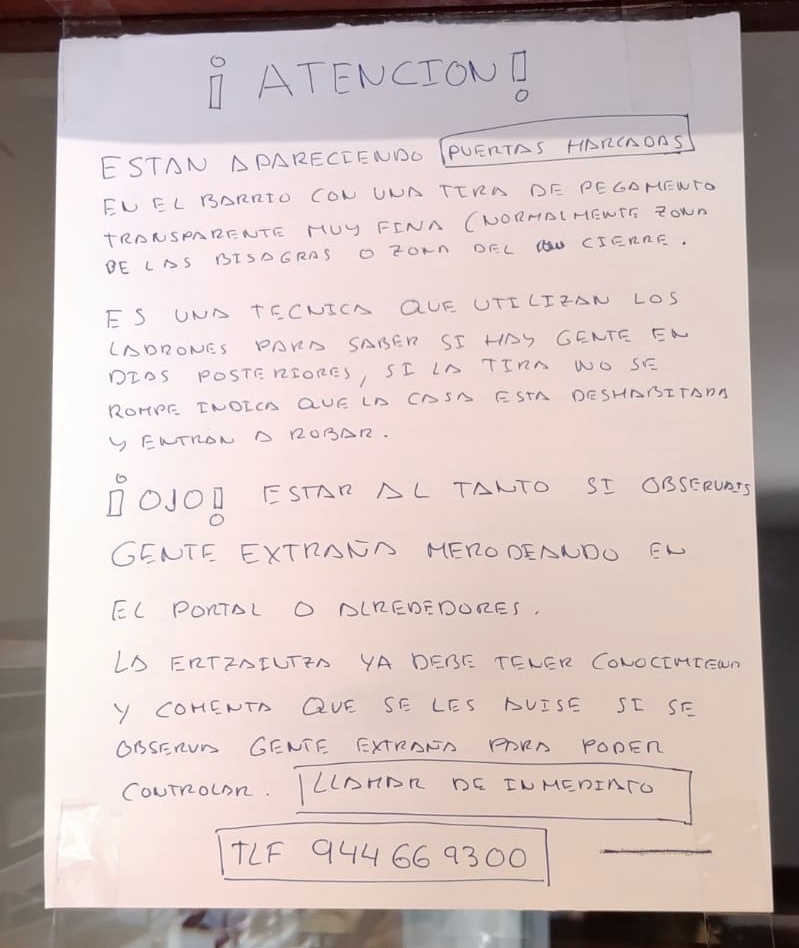 ¡ATENCION!
ESTAN APARECIENDO PUERTAS MARCADAS
EN EL BARRIO CON UNA TIRA DE PEGAMENTO
TRANSPARENTE MUY FINA (NORMALMENTE ZONA
DE LAS BISAGRAS O ZONA DEL CIERRE.
ES UNA TECNICA QUE UTILIZAN LOS
LADRONES PARA SABER SI HAY GENTE EN
DIAS POSTERIORES, SI LA TIRA NO SE
ROMPE INDICA QUE LA CASA ESTA DESHABITADA
Y ENTRAN A ROBAR.
¡OJO! ESTAR AL TANTO SI OBSERVAIS
GENTE EXTRAÑA MERODEANDO EN
EL PORTAL O ALREDEDORES.
LA ERTZAINTZA YA DEBE TENER CONOCIMIENO
Y COMENTA QUE SE LES AVISE SI SE
OBSERVA GENTE EXTRAÑA PARA PODER
CONTROLAR. LLAMAR DE INMEDIATO
TLF 944 66 9300